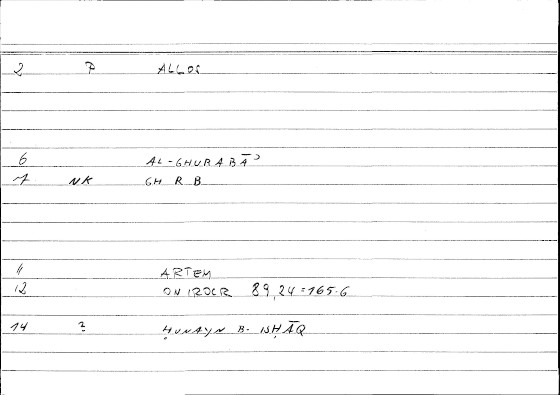 2 P ALLOS
6 AL-GHURABĀʾ
7 NK GH R B
11 ARTEM
12 ONIROCR 89,24=165.6
14 ? ḤUNAYN B. ISḤĀQ